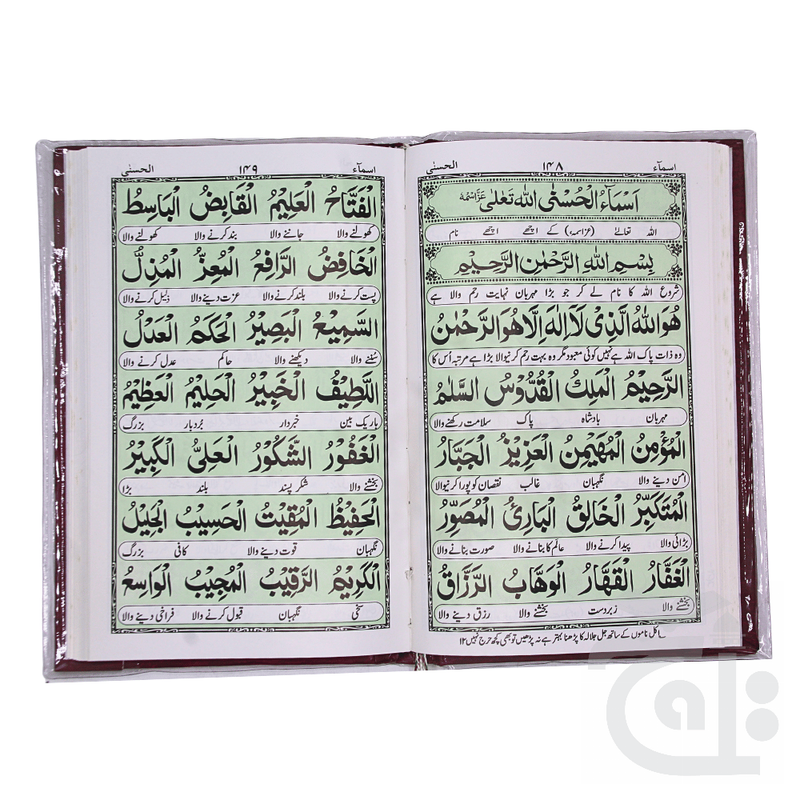 اسماء ۱۴۸ الحسنٰی
اَسْمَاءُ الْحُسْنٰی اللّٰهِ تَعَالٰی عَزَّاسْمُهٗ
اللہ تعالےٰ (عزاسمہ) کے اچھے اچھے نام
بِسْمِ اللّٰهِ الرَّحْمٰنِ الرَّحِيْمِ
شروع اللہ کا نام لے کر جو بڑا مہربان نہایت رحم والا ہے
هُوَ اللّٰهُ الَّذِیْ لَآ اِلٰهَ اِلَّا هُوَ الرَّحْمٰنُ
وہ ذات پاک اللہ ہے نہیں کوئی معبود مگر وہ بہت رحم کرنیوالا بڑا ہے مرتبہ اُس کا
الرَّحِيْمُ الْمَلِكُ الْقُدُّوْسُ السَّلٰمُ
مہربان بادشاہ پاک سلامت رکھنے والا
الْمُؤْمِنُ الْمُهَيْمِنُ الْعَزِيْزُ الْجَبَّارُ
امن دینے والا نگہبان غالب نقصان کو پورا کرنیوالا
الْمُتَكَبِّرُ الْخَالِقُ الْبَارِئُ الْمُصَوِّرُ
بڑائی والا پیدا کرنے والا عالم کا بنانے والا صورت بنانے والا
الْغَفَّارُ الْقَهَّارُ الْوَهَّابُ الرَّزَّاقُ
بخشنے والا زبردست بخشنے والا رزق دینے والا
کل ناموں کے ساتھ جل جلالہ کا پڑھنا بہتر ہے نہ پڑھیں تو بھی کچھ حرج نہیں ۱۲
اسماء ۱۴۹ الحسنٰی
الْفَتَّاحُ الْعَلِيْمُ الْقَابِضُ الْبَاسِطُ
کھولنے والا جاننے والا بند کرنے والا کھولنے والا
الْخَافِضُ الرَّافِعُ الْمُعِزُّ الْمُذِلُّ
پست کرنے والا بلند کرنے والا عزت دینے والا ذلیل کرنے والا
السَّمِيْعُ الْبَصِيْرُ الْحَكَمُ الْعَدْلُ
سُننے والا دیکھنے والا حاکم عدل کرنے والا
اللَّطِيْفُ الْخَبِيْرُ الْحَلِيْمُ الْعَظِيْمُ
باریک بین خبردار بُردبار بزرگ
الْغَفُوْرُ الشَّكُوْرُ الْعَلِیُّ الْكَبِيْرُ
بخشنے والا شکر پسند بلند بڑا
الْحَفِيْظُ الْمُقِيْتُ الْحَسِيْبُ الْجَلِيْلُ
نگہبان قوت دینے والا کافی بزرگ
الْكَرِيْمُ الرَّقِيْبُ الْمُجِيْبُ الْوَاسِعُ
سخی نگہبان قبول کرنے والا فراخی دینے والا